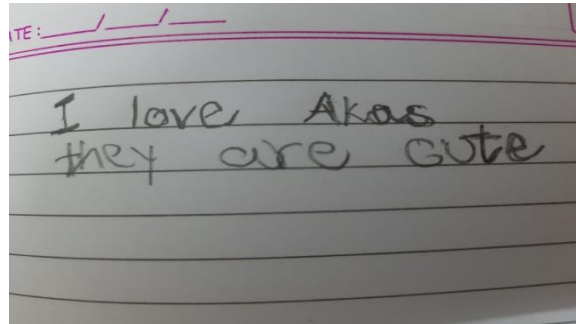 ATE: __/__/__
I love Akas
they are cute